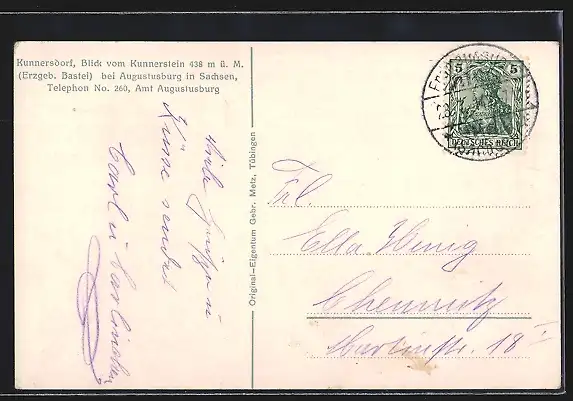 Kunnersdorf, Blick vom Kunnerstein 438 m ü. M.
(Erzgeb. Bastei) bei Augustusburg in Sachsen,
Telephon No. 260, Amt Augustusburg
Viele Grüsse u
Küsse sendet
Original-Eigentum Gebr. Metz, Tübingen
5 5
DEUTSCHES REICH
Frl.
Ella Henig
Chemnitz
Martinstr. 18 I